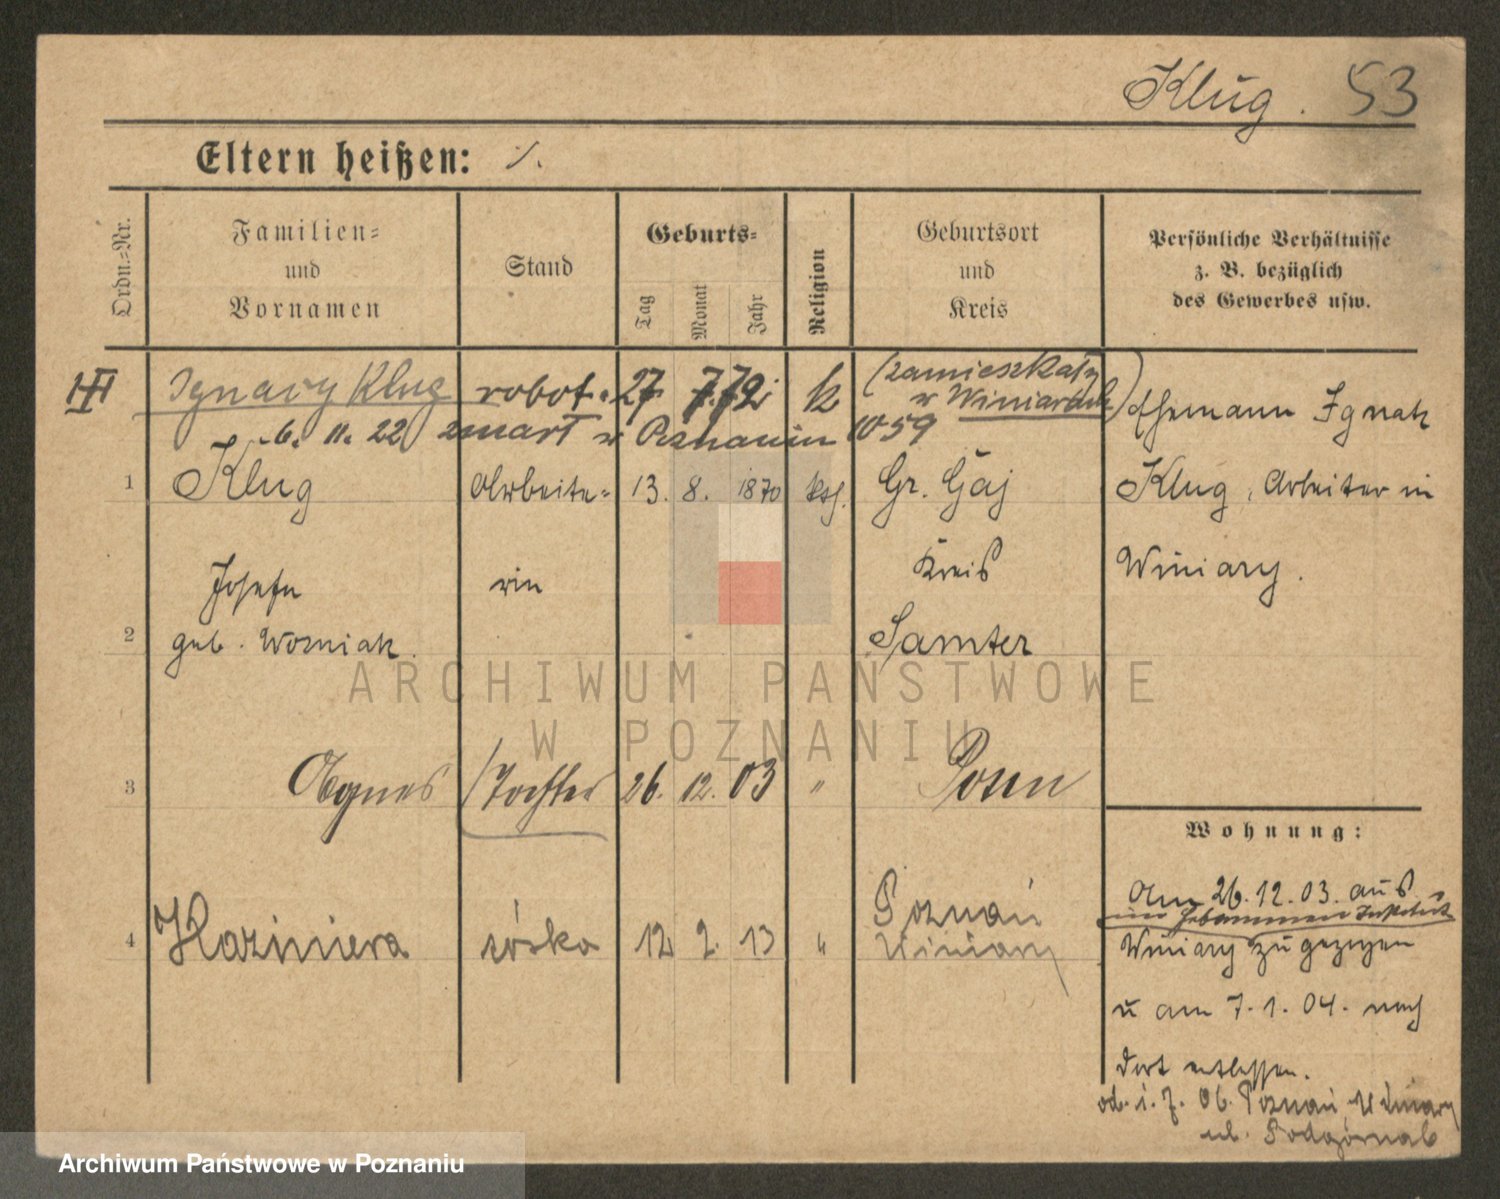 Klug. 53
Eltern heißen: ·/.
Ordn.-Nr.
Familien-
und
Vornamen
Stand
Geburts-
Tag
Monat
Jahr
Religion
Geburtsort
und
Kreis
Persönliche Verhältnisse
z. B. bezüglich
des Gewerbes usw.
Ignacy Klug robot. 27 7. 72 k (zamieszkały
w Winiarach)
6. 11. 22 zmarł w Poznaniu 1059
1 Klug Arbeite- 13. 8. 1870 kth. Gr. Gaj
Josefa rin Kreis
2 geb. Wozniak Samter
Ehemann Ignatz
Klug, Arbeiter in
Winiary.
3 Agnes Tochter 26. 12. 03 " Posen
4 Kazimiera córka 12 2. 13 " Poznań
Winiary
Wohnung:
Am 26.12.03. aus
im Hebammen Institut
Winiary zugezogen
u am 7.1.04. nach
dort entlassen.
od. 1.7.06. Poznań, Winiary
ul.
ARCHIWUM PAŃSTWOWE
W POZNANIU
Archiwum Państwowe w Poznaniu